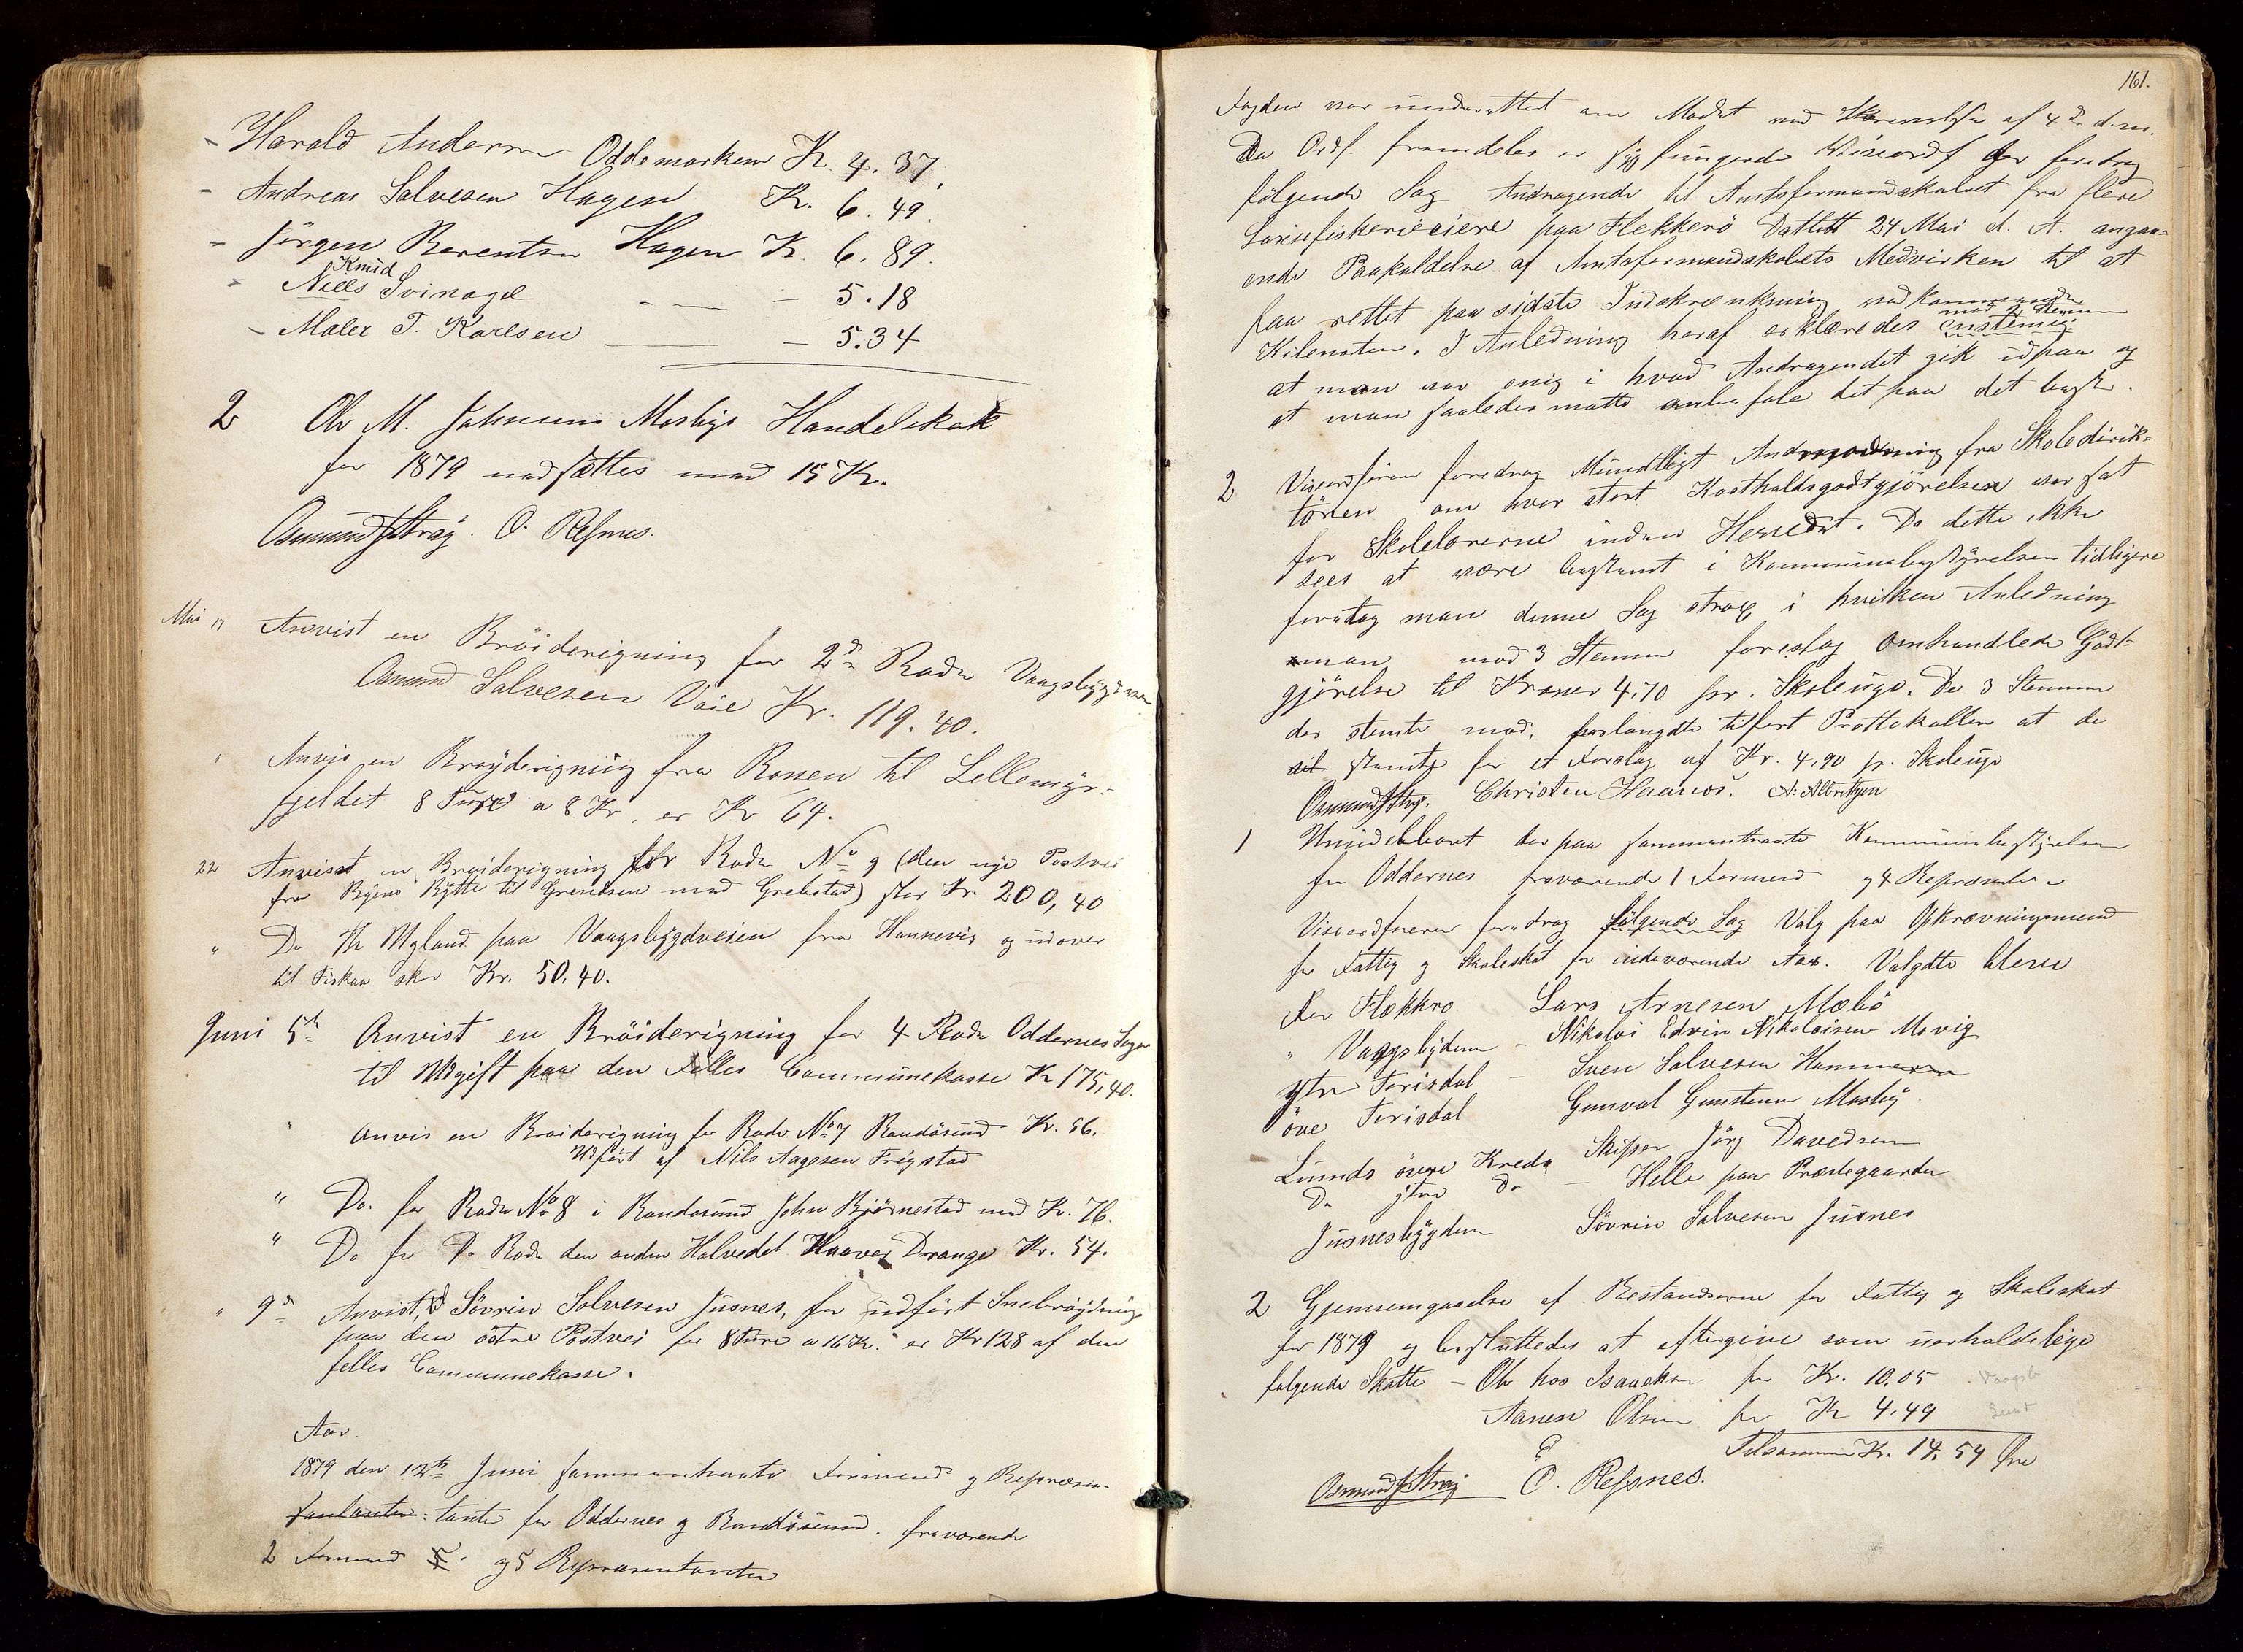 - Harald Andersen Oddemarken Kr. 4.37.
- Andreas Salvesen Hagen Kr. 6.49.
- Jörgen Berentsen Hagen Kr. 6.89.
Knud
- Niels Svinagel — — — 5.18
- Maler T. Karlsen — — — 5.34
2 Ole M. Johnsens Mosbys Handelskat
for 1879 nedsættes med 15 Kr.
Osmund Stray. O. Refsnes.
Mai 17 Anvist en Bröiderigning for 2de Rode Vaagsbygd
Osmund Salvesen Vaie Kr. 119.40.
" Anvis en Bröyderigning fra Rossen til Lellemyr-
fjeldet 8 Ture a 8 Kr. er Kr 64.
22 Anvist en Broiderigning for Rode No 9 (den nye Postvei
fra Byens Bytte til Grendsen med Grebstad) stor Kr. 200,40
" Do Th Mgland paa Vaagsbygdveien fra Hannevig og udover
til Fiskaa stor Kr. 50.40.
Juni 5te Anvist en Bröiderigning for 4 Rode Oddernes Sogn
til Udgift paa den Felles Communekasse Kr 175,40.
" Anvis en Broiderigning for Rode No 7 Randösund Kr. 56.
Udfört af Nils Aagesen Frigstad
" Do. for Rode No 8 i Randosund John Björnestad med Kr. 76.
" Do for Do Rode den anden Halvedel Haaver Drange Kr. 54.
" 9de Anvist, Sövrin Salvesen Jusnes, for udfört Snebröidning
paa den östre Postvei for 8 Ture a 16 Kr. er Kr 128 af den
felles Communekasse.
Aar
1879 den 12te Juni sammentraate Formend og Repræsen-
tanter for Oddernes og Randösund. fraværende
2 Formend og 5 Represantanter
161.
Fogden var underrettet om Mödet ved Skrivelse af 4de d.m.
Da Ordf. fremdeles er syg fungerede Viseordf der foredrog
følgende Sag Andragende til Amtsformandskabet fra flere
Laxefiskerieiere paa Flekkerö Dattett 24 Mai d. A. angaa-
ende Paakaldelse af Amtsformandskabets Medvirken til at
faa rettet paa sidste Indskrænkning ved
mod 2 Stemmer
Kilenoten. I Anledning heraf erklæredes enstemig
at man var enig i hvad Andragendet gik ud paa og
at man saaledes maatte anbefale det paa det beste.
2 Viseordføren foredrog Mundtligt Andragende fra Skoledirik-
tören om hvor stort Kostholdsgodtgjörelsen var sat
for Skolelærerne inden Herredet. Da dette ikke
sees at være bestemt i Kommunebestyrelsen tidligere
foretog man denne Sag strax i hvilken Anledning
man mod 3 Stemmer foreslog omhandlede Godt-
gjörelse til Kroner 4,70 pr. Skoleuge. De 3 Stemmer
der stemte mod, forlangdte tilført Prottokollen at de
stemte for et Forslag af Kr. 4,90 pr. Skoleuge
Osmund Stray. Christen Haanes. A: Albretsen
1 Umiddelbart derpaa sammentraate Kommunebestyrelsen
for Oddernes fraværende 1 Formend og 4 Repræsenter
Viseordføreren foredrog følgende Sag Valg paa Opkrævningsmend
for Fattig og Skoleskat for indeværende Aar. Valgdte bleve
For Flekkerö Lars Arnesen Mæbö
" Vaagsbygden - Nikolai Edvin Nikolaisen Movig
ytre Torisdal - Sven Salvesen Hammeren
övre Torisdal Gunvald Gunstensen Mosby
Lunds övre Kreds Skipper Jörg Davedsen
Do ytre Do - Helle paa Præstegaarden
Jusnesbygden Sövrin Salvesen Jusnes
2 Gjennemgaaelse af Restancerne for Fattig og Skoleskat
for 1879 og besluttedes at eftergive som uerholdelige
følgende Skatte - Ole hos Isaachsen for Kr. 10.05 Vaagsb
Aanen Olsen for Kr 4.49 Lund
Tilsammen Kr. 14.54 Øre
Osmund Stray O. Refsnes.